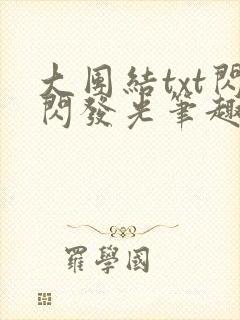 大團結txt閃
閃發光筆趣
羅學國